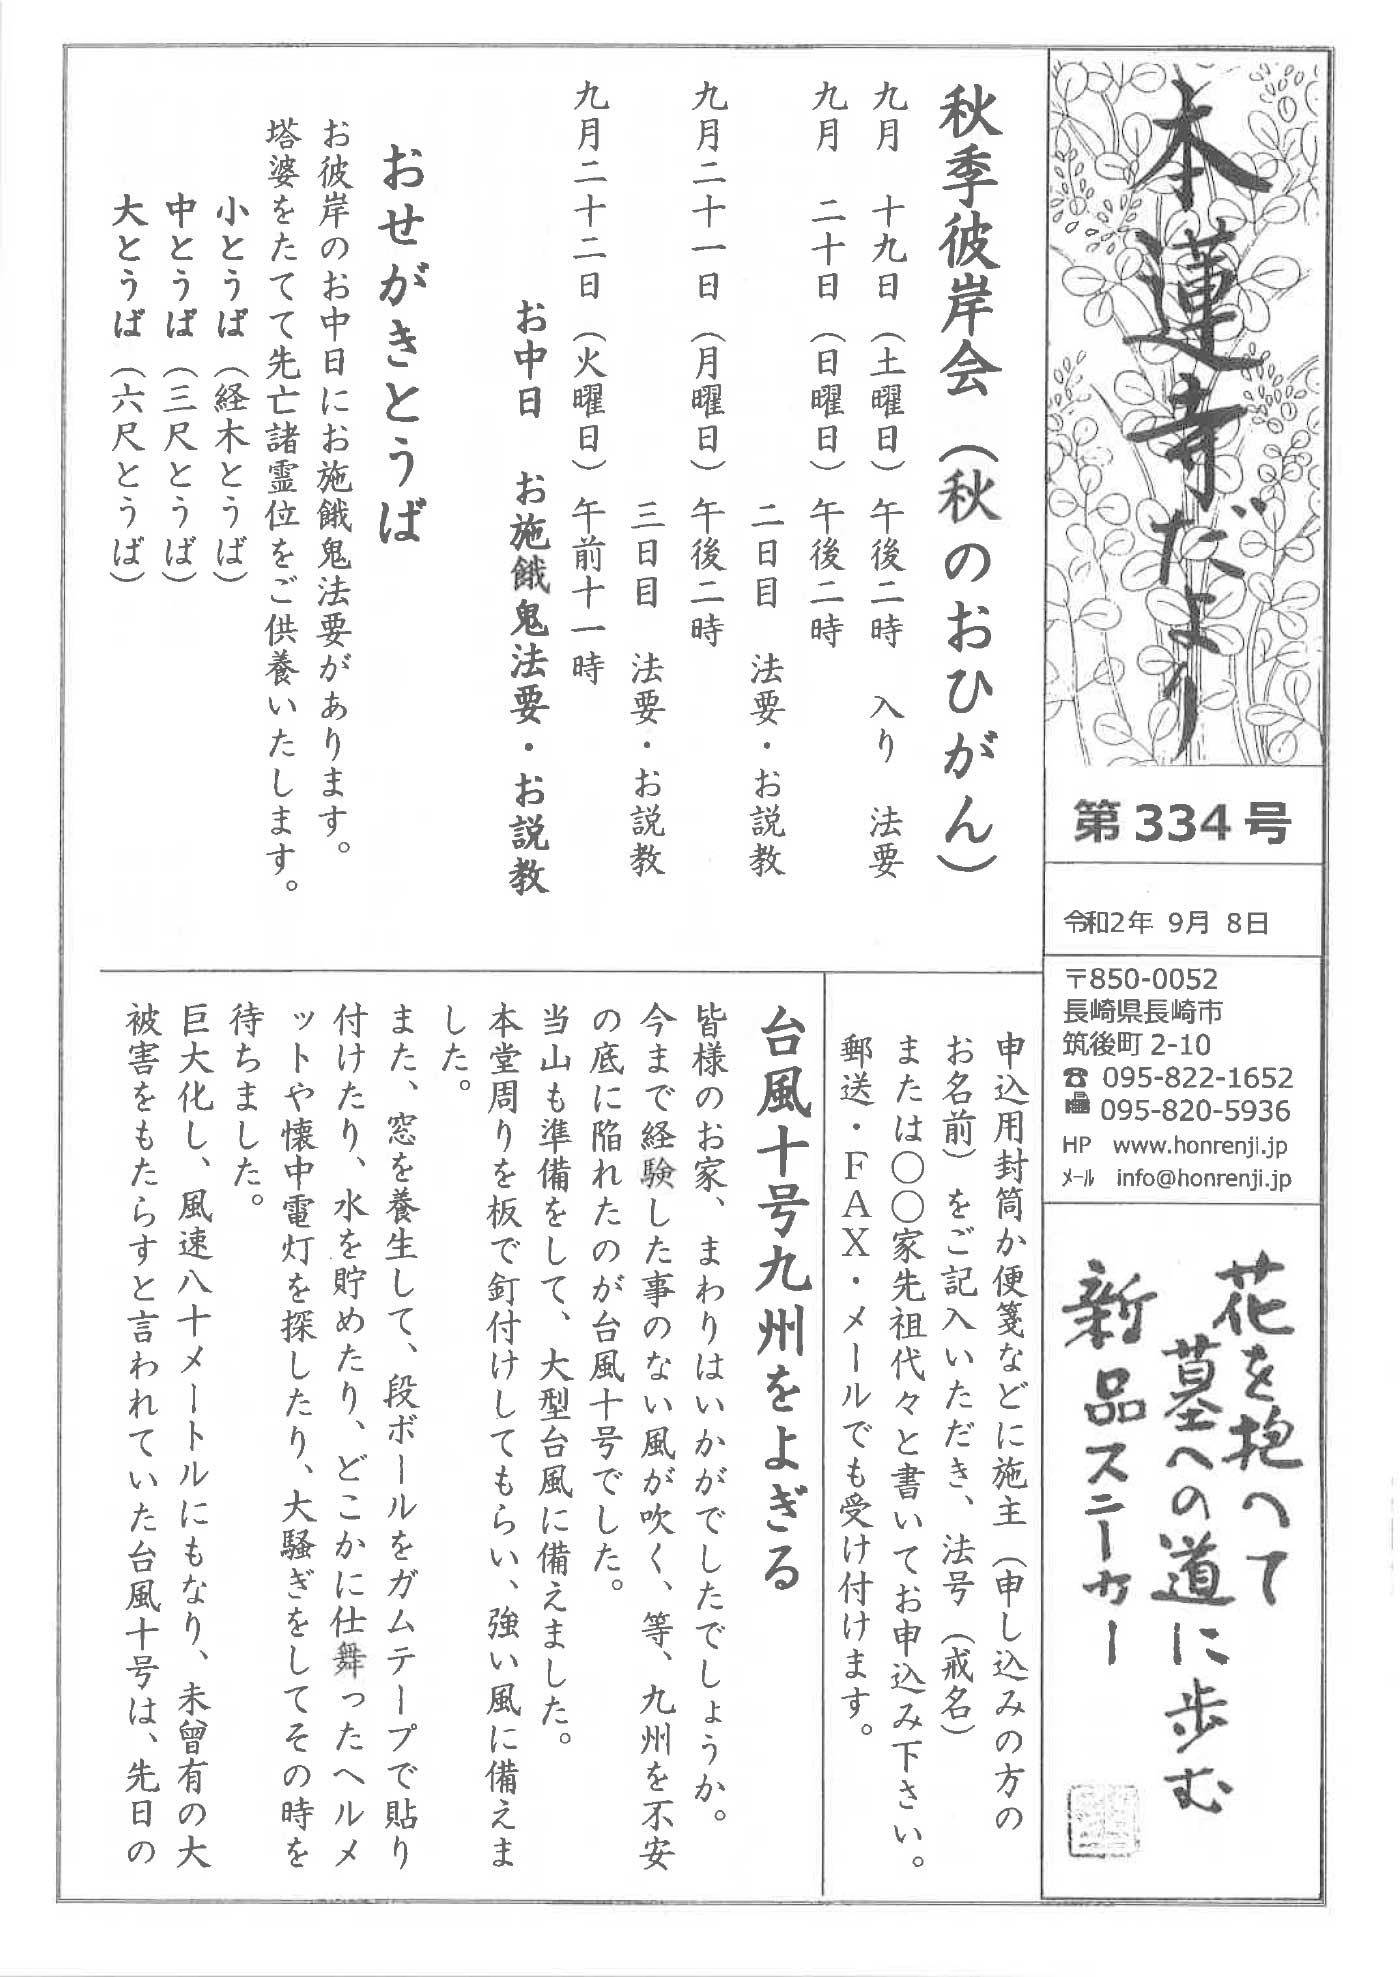 本蓮寺だより
第334号
令和2年 9月 8日
〒850-0052
長崎県長崎市
筑後町 2-10
☎ 095-822-1652
📠 095-820-5936
HP www.honrenji.jp
ﾒｰﾙ info@honrenji.jp
花を抱へて
墓への道に歩む
新品スニーカー
秋季彼岸会（秋のおひがん）
九月 十九日（土曜日）午後二時 入り 法要
九月 二十日（日曜日）午後二時
二日目 法要・お説教
九月二十一日（月曜日）午後二時
三日目 法要・お説教
九月二十二日（火曜日）午前十一時
お中日 お施餓鬼法要・お説教
おせがきとうば
お彼岸のお中日にお施餓鬼法要があります。
塔婆をたてて先亡諸霊位をご供養いたします。
小とうば（経木とうば）
中とうば（三尺とうば）
大とうば（六尺とうば）
申込用封筒か便箋などに施主（申し込みの方の
お名前）をご記入いただき、法号（戒名）
または〇〇家先祖代々と書いてお申込み下さい。
郵送・ＦＡＸ・メールでも受け付けます。
台風十号九州をよぎる
皆様のお家、まわりはいかがでしたでしょうか。
今まで経験した事のない風が吹く、等、九州を不安
の底に陥れたのが台風十号でした。
当山も準備をして、大型台風に備えました。
本堂周りを板で釘付けしてもらい、強い風に備えま
した。
また、窓を養生して、段ボールをガムテープで貼り
付けたり、水を貯めたり、どこかに仕舞ったヘルメ
ットや懐中電灯を探したり、大騒ぎをしてその時を
待ちました。
巨大化し、風速八十メートルにもなり、未曾有の大
被害をもたらすと言われていた台風十号は、先日の